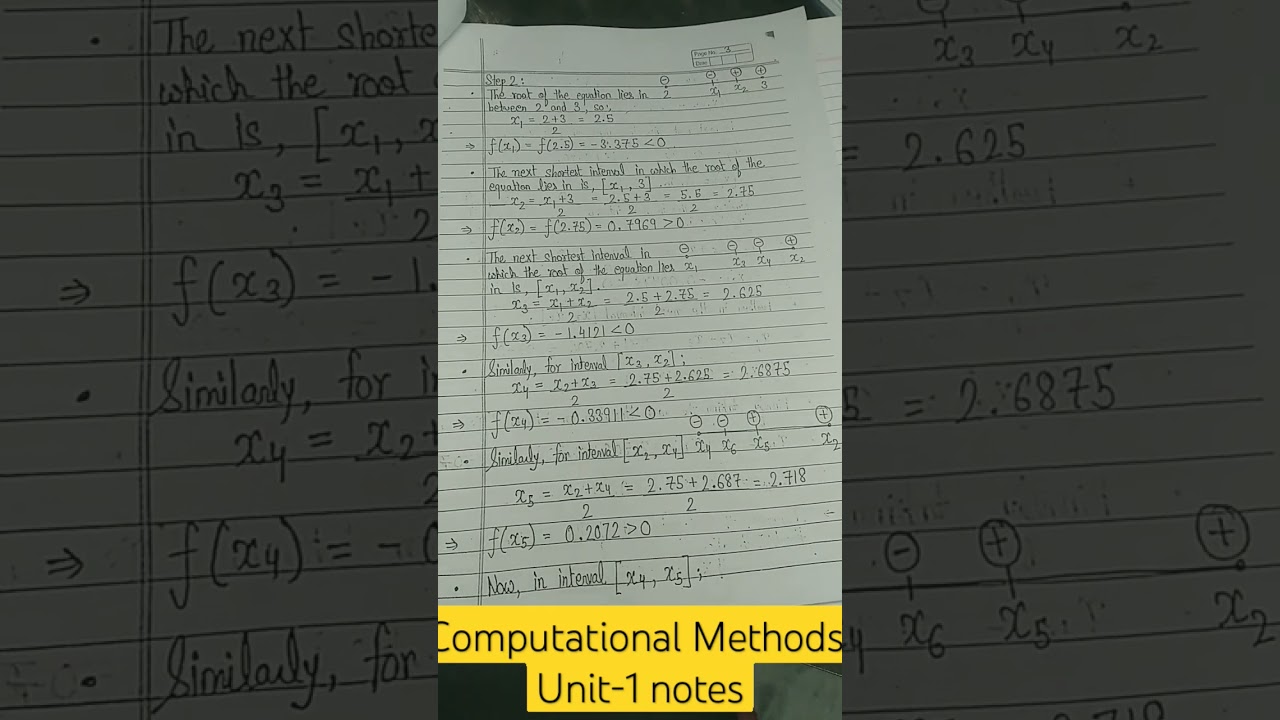 Page No. 3
Date
Step 2:
• The root of the equation lies in between 2 and 3, so;
⊖ ⊖ ⊕ ⊕
2 x₁ x₂ 3
x₁ = 2+3 / 2 = 2.5
⇒ f(x₁) = f(2.5) = -3.375 < 0
• The next shortest interval in which the root of the
equation lies in is, [x₁, 3]
x₂ = x₁+3 / 2 = 2.5+3 / 2 = 5.5 / 2 = 2.75
⇒ f(x₂) = f(2.75) = 0.7969 > 0
• The next shortest interval in
which the root of the equation lies
in is, [x₁, x₂].
⊖ ⊖ ⊖ ⊕
x₁ x₃ x₄ x₂
x₃ = x₁+x₂ / 2 = 2.5+2.75 / 2 = 2.625
⇒ f(x₃) = -1.4121 < 0
• Similarly, for interval [x₃, x₂];
x₄ = x₂+x₃ / 2 = 2.75+2.625 / 2 = 2.6875
⇒ f(x₄) = -0.33911 < 0
• Similarly, for interval [x₂, x₄]
⊖ ⊖ ⊕ ⊕
x₄ x₆ x₅ x₂
x₅ = x₂+x₄ / 2 = 2.75+2.687 / 2 = 2.718
⇒ f(x₅) = 0.2072 > 0
• Now, in interval [x₄, x₅];
Computational Methods
Unit-1 notes